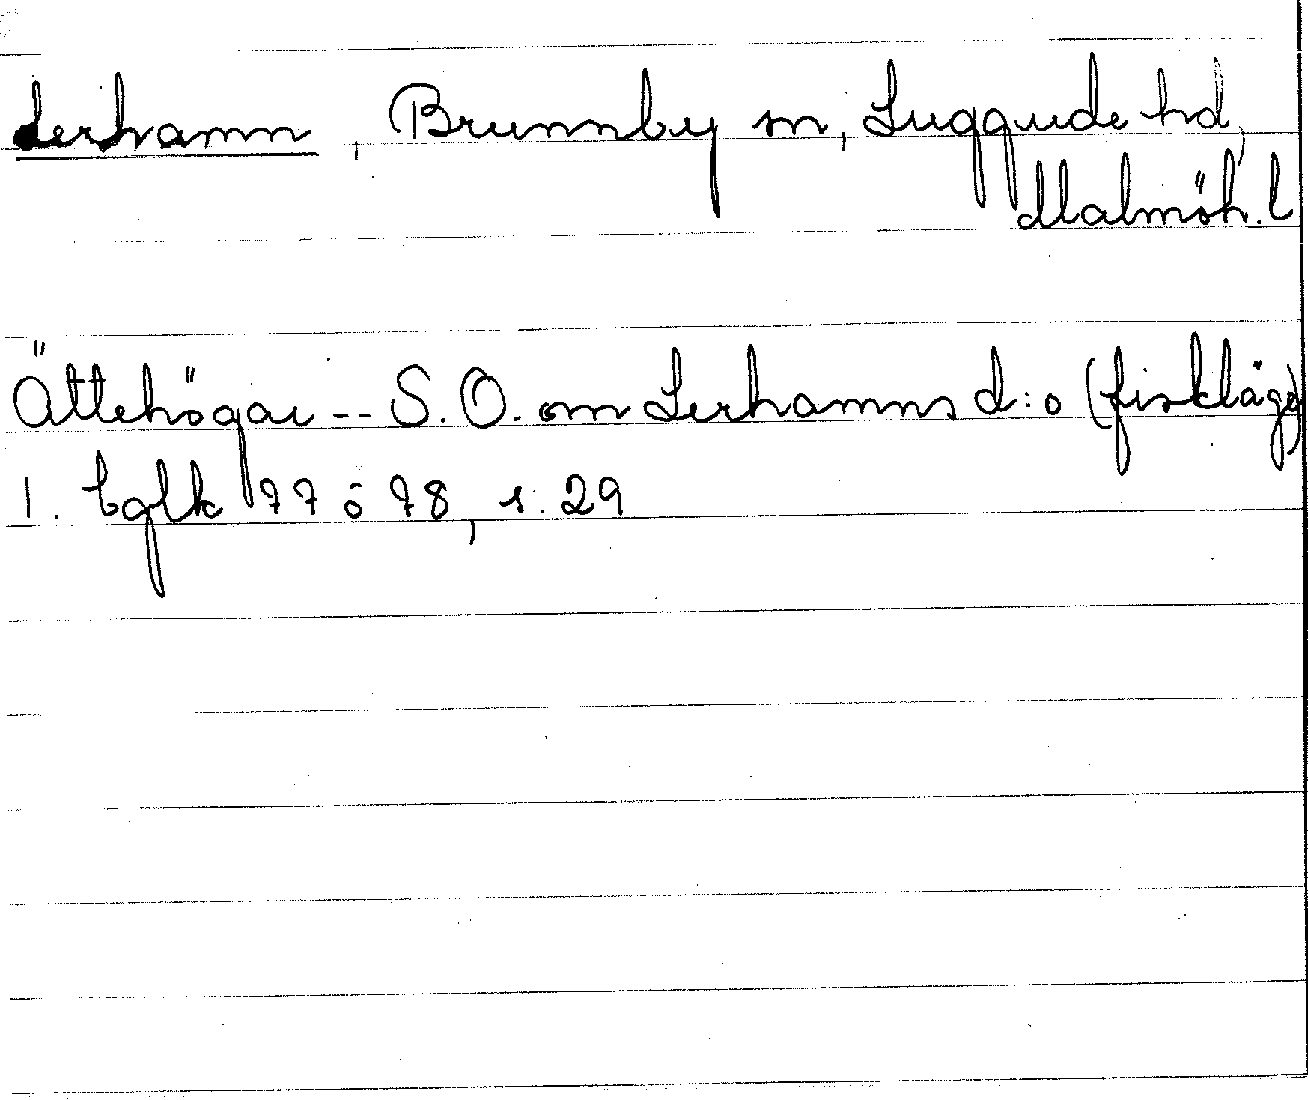 Lerhamn, Brunnby sn, Luggude hd,
Malmöh. l
Ättehögar -- S.O. om Lerhamns d:o (fiskläge)
1. bglk 77 o 78, s. 29